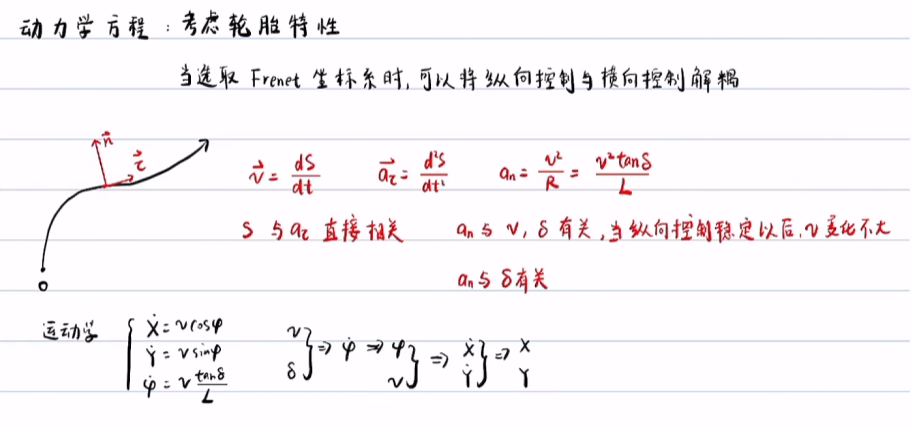 动力学方程：考虑轮胎特性
当选取 Frenet 坐标系时，可以将纵向控制与横向控制解耦
n⃗
τ⃗
v⃗ = dS/dt a⃗τ = d²S/dt² an = v²/R = v²tanδ/L
S 与 aτ 直接相关 an 与 v, δ 有关，当纵向控制稳定以后，v 变化不大
an 与 δ 有关
O
运动学 { Ẋ = vcosφ
Ẏ = vsinφ
φ̇ = v tanδ/L
v δ } ⇒ φ̇ ⇒ φ v } ⇒ Ẋ Ẏ } ⇒ X Y